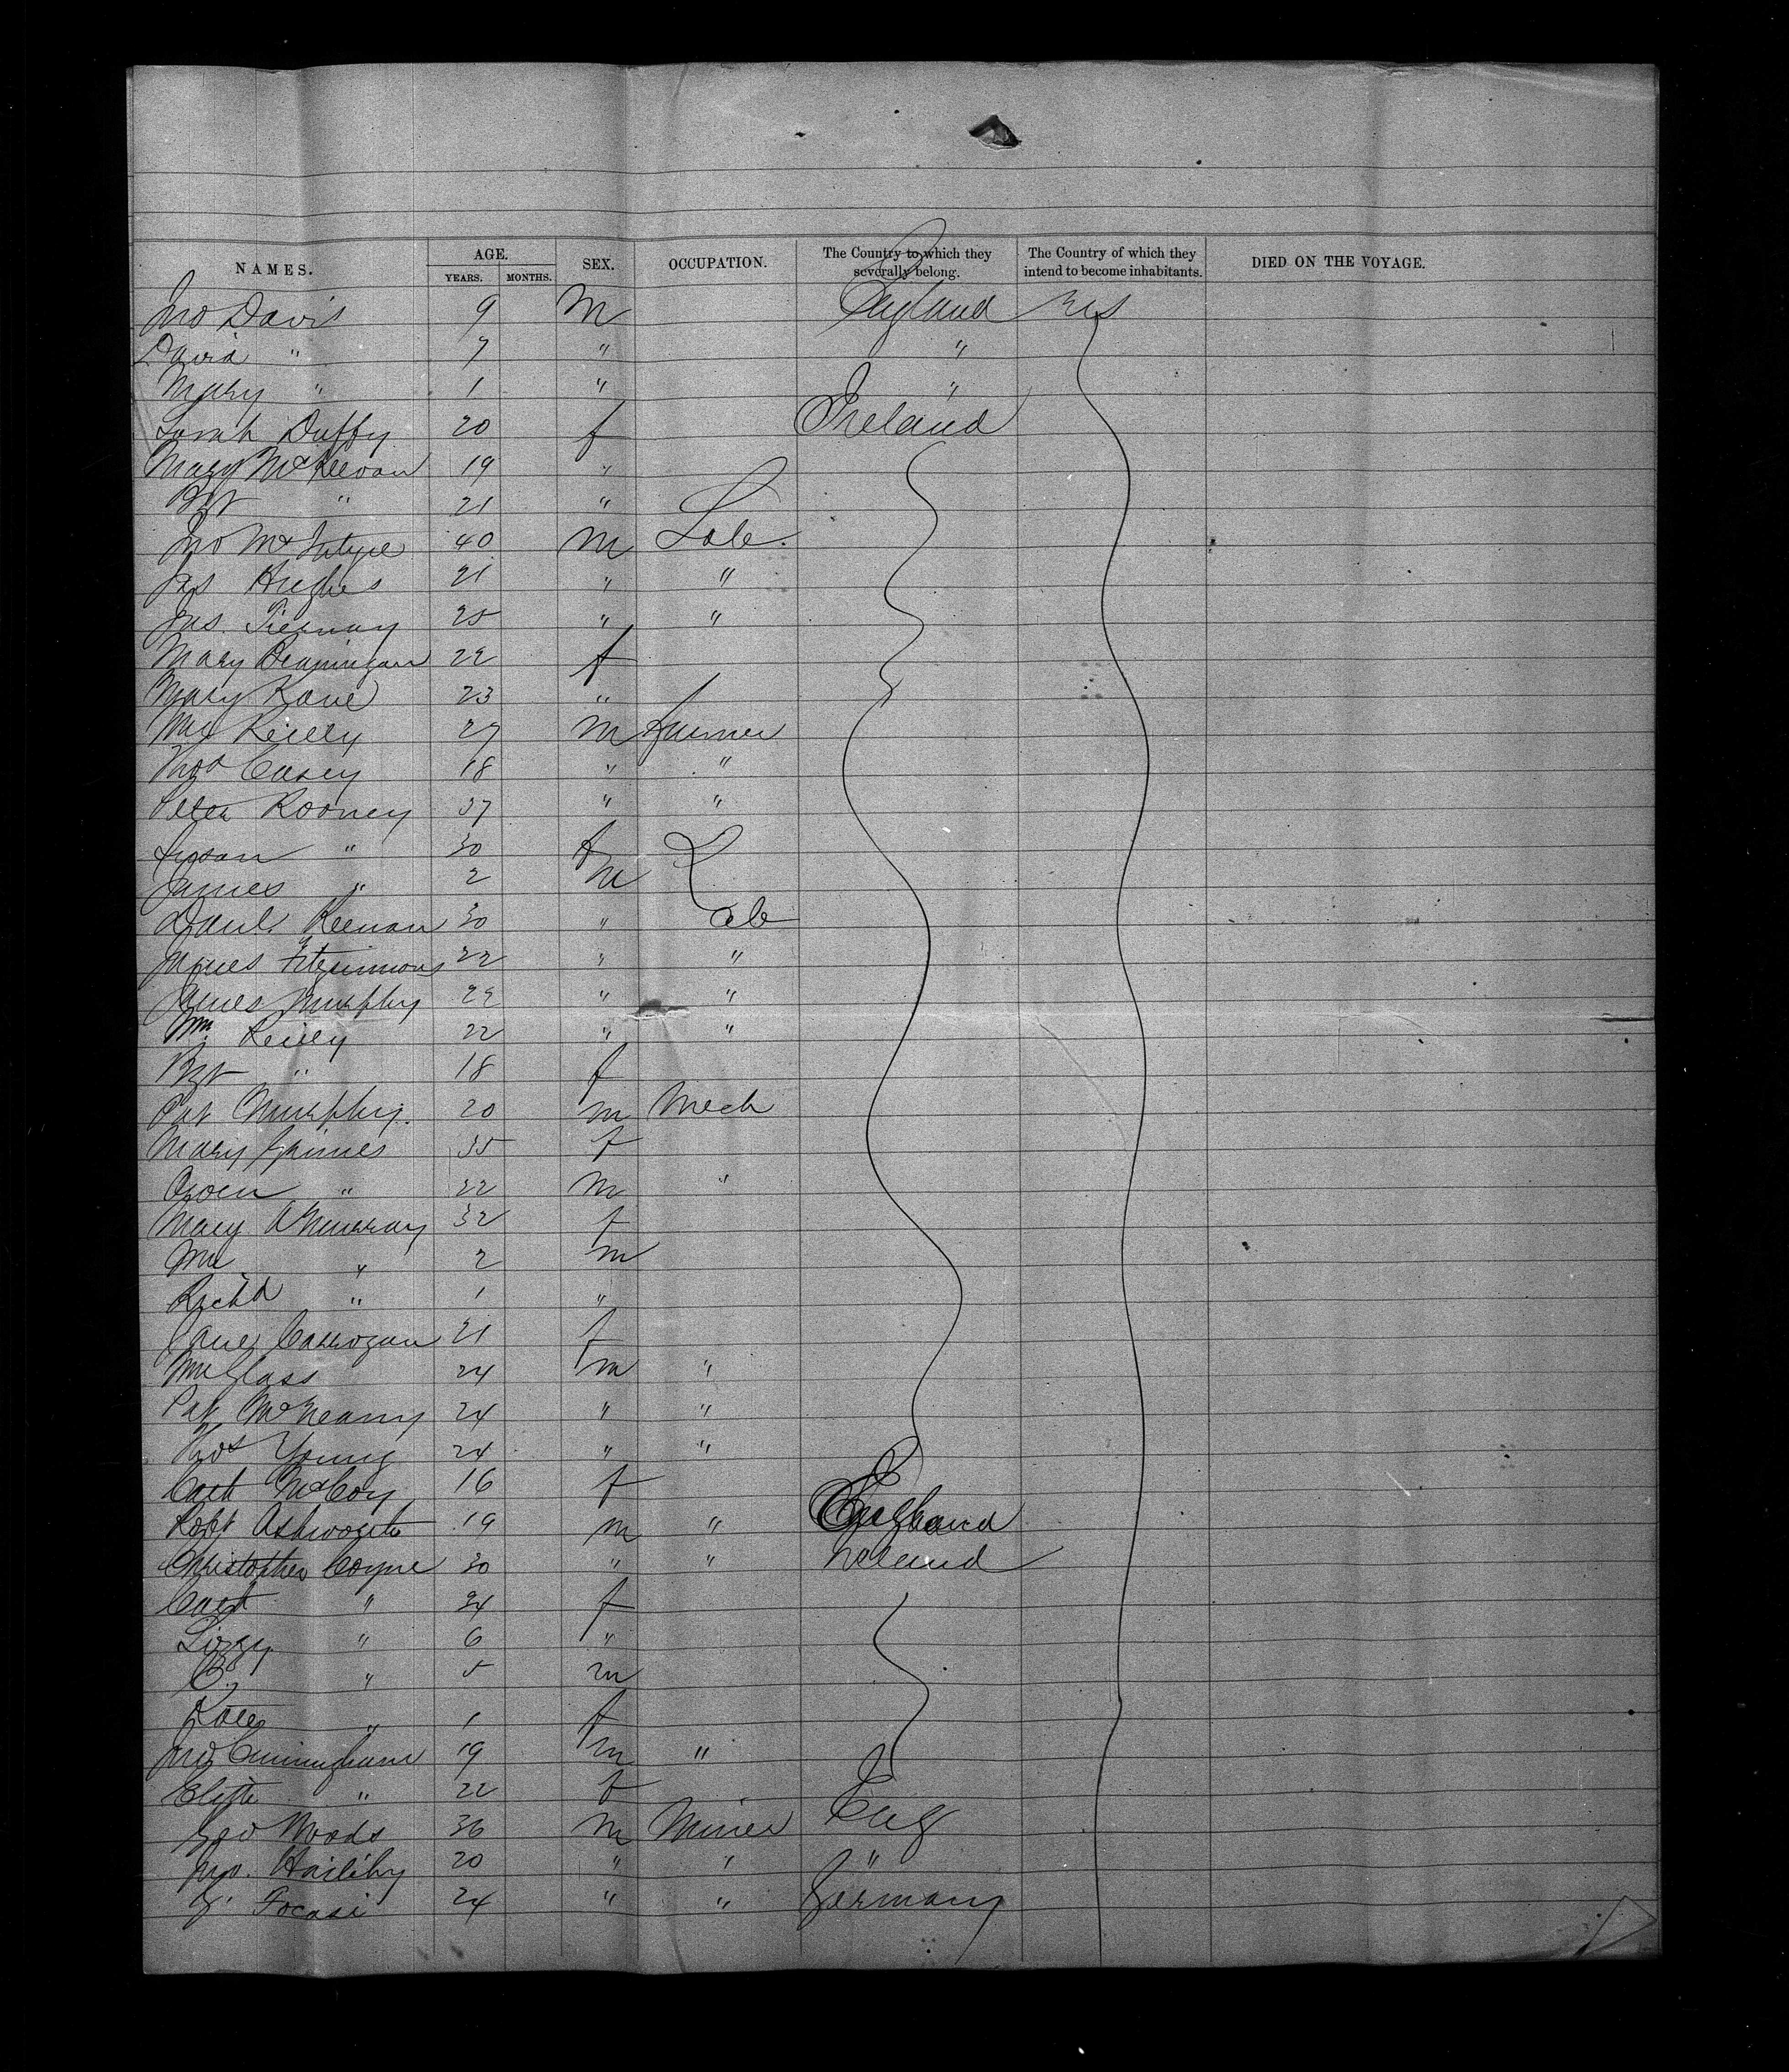 NAMES. AGE. YEARS. MONTHS. SEX. OCCUPATION. The Country to which they severally belong. The Country of which they intend to become inhabitants. DIED ON THE VOYAGE.
Jno Davis 9 M England US
David " 7 " "
Mary " 1 " "
Sarah Duffy 20 f Ireland
Mary McKeevan 19 "
Bgt " 21 "
Jno McIntyre 40 M Lab.
Jas Hughes 21 " "
Jas. Tiernay 25 " "
Mary Brannigan 22 f
Mary Kane 23 "
Wm Reilly 27 M Farmer
Thos Casey 18 " "
Peter Rooney 37 " "
Susan " 30 f
James " 2 M
Danl. Keenan 30 " Lab
James Fitzsimmons 22 " "
James Murphy 22 " "
Wm. Reilly 22 " "
Bgt " 18 f
Pat Murphy. 20 m Mech
Mary Grimes 35 f
Owen " 22 M "
Mary A Murray 32 f
Wm " 2 m
Richd " 1 "
Jane Carrogan 21 f
Wm Glass 24 m "
Pat McNeany 24 " "
Thos Young 24 " "
Cath McCoy 16 f
Robt Ashworth 19 m " England
Christopher Coyne 30 " " Ireland
Cath " 34 f
Lizzy " 6 "
" 5 m
Kate " 1 f
Jno Cunningham 19 m "
" 22 f
Geo Woods 36 M Miner Eng
Jno. 20 " " "
24 " " Germany